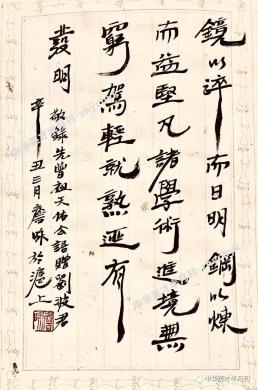 鏡以淬而日明鋼以煉
而益堅凡諸學術進境無
窮駕輕就熟迺有
發明
敬錄先曾祖天佑公語贈劉波君
辛丑三月詹於滬上
中华英才半月刊